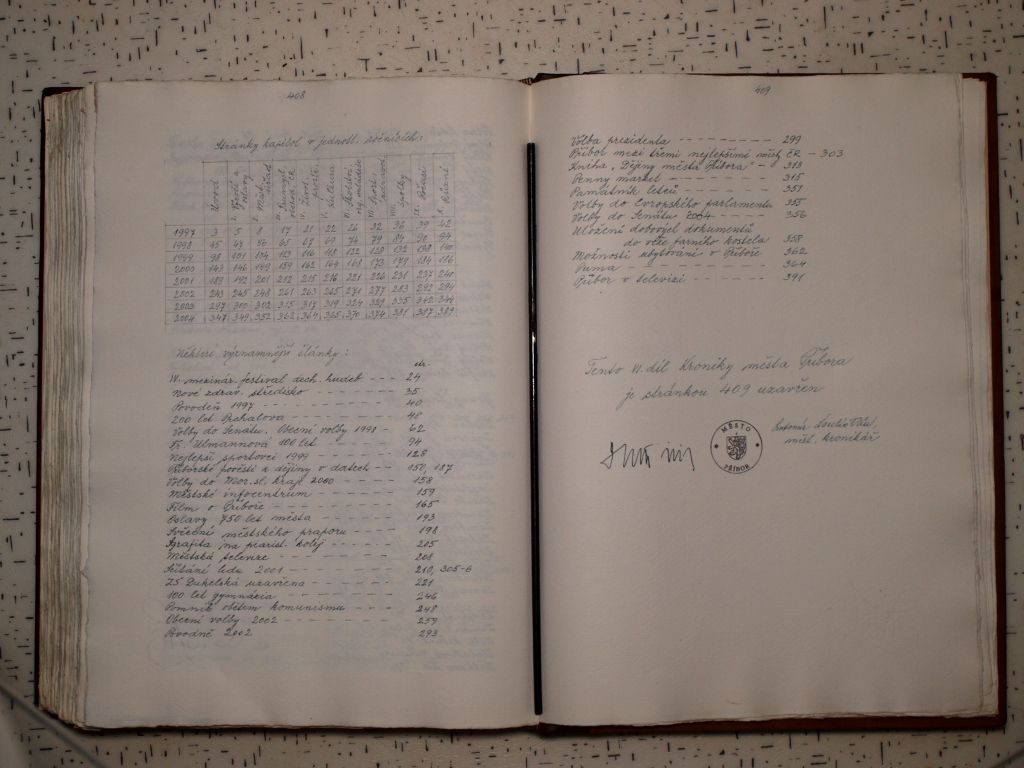 408
Stránky kapitol v jednotl. ročnících:
Úvod
1997 3 5 8 17 21 22 26 32 36 39 42
1998 45 47 56 65 67 69 74 79 84 90 94
1999 98 101 104 113 116 118 132 138
2000 143 146 149 159 162 164 168 173 179 184 186
2001 189 192 201 212 215 216 221 226 231 237 240
2002 243 245 248 261 263 265 271 277 283 292 294
2003 297 300 302 315 317 319 324 329 335 342 344
2004 347 349 352 362 364 365 370 374 381 387 389
Některé významnější články:
str.
IV. mezinár. festival dech. hudeb --- 24
Nové zdrav. středisko --- 35
Povodeň 1997 --- 40
200 let Prchalova --- 48
Volby do Senátu, Obecní volby 1998 - 62
Fr. Ulmannová 100 let --- 94
Nejlepší sportovci 1999 --- 128
Příborské pověsti a dějiny v datech --- 150, 187
Volby do Mor.sl. kraje 2000 --- 158
Městské infocentrum --- 159
Film o Příboře --- 165
Oslavy 750 let města --- 193
Svěcení městského praporu --- 198
Grafita na piarist. kolej --- 205
Městská televize --- 208
2001 --- 210, 305-6
ZŠ Dukelská uzavřena --- 221
100 let gymnázia --- 246
Pomník obětem komunismu --- 248
Obecní volby 2002 --- 259
Povodně 2002 293
409
Volba prezidenta --- 299
Příbor mezi třemi nejlepšími ČR - 303
Kniha "Dějiny města Příbora" - 313
Penny market --- 315
Památník letců --- 351
Volby do Evropského parlamentu 355
Volby do Senátu 2004 --- 356
Uložení dobových dokumentů
do věže farního kostela 358
Možnosti ubytování v Příboře 362
Puma --- 364
Příbor v televizi --- 391
Tento IV. díl Kroniky města Příbora
je stránkou 409 uzavřen
MĚSTO
PŘÍBOR
Antonín
měst. kronikář